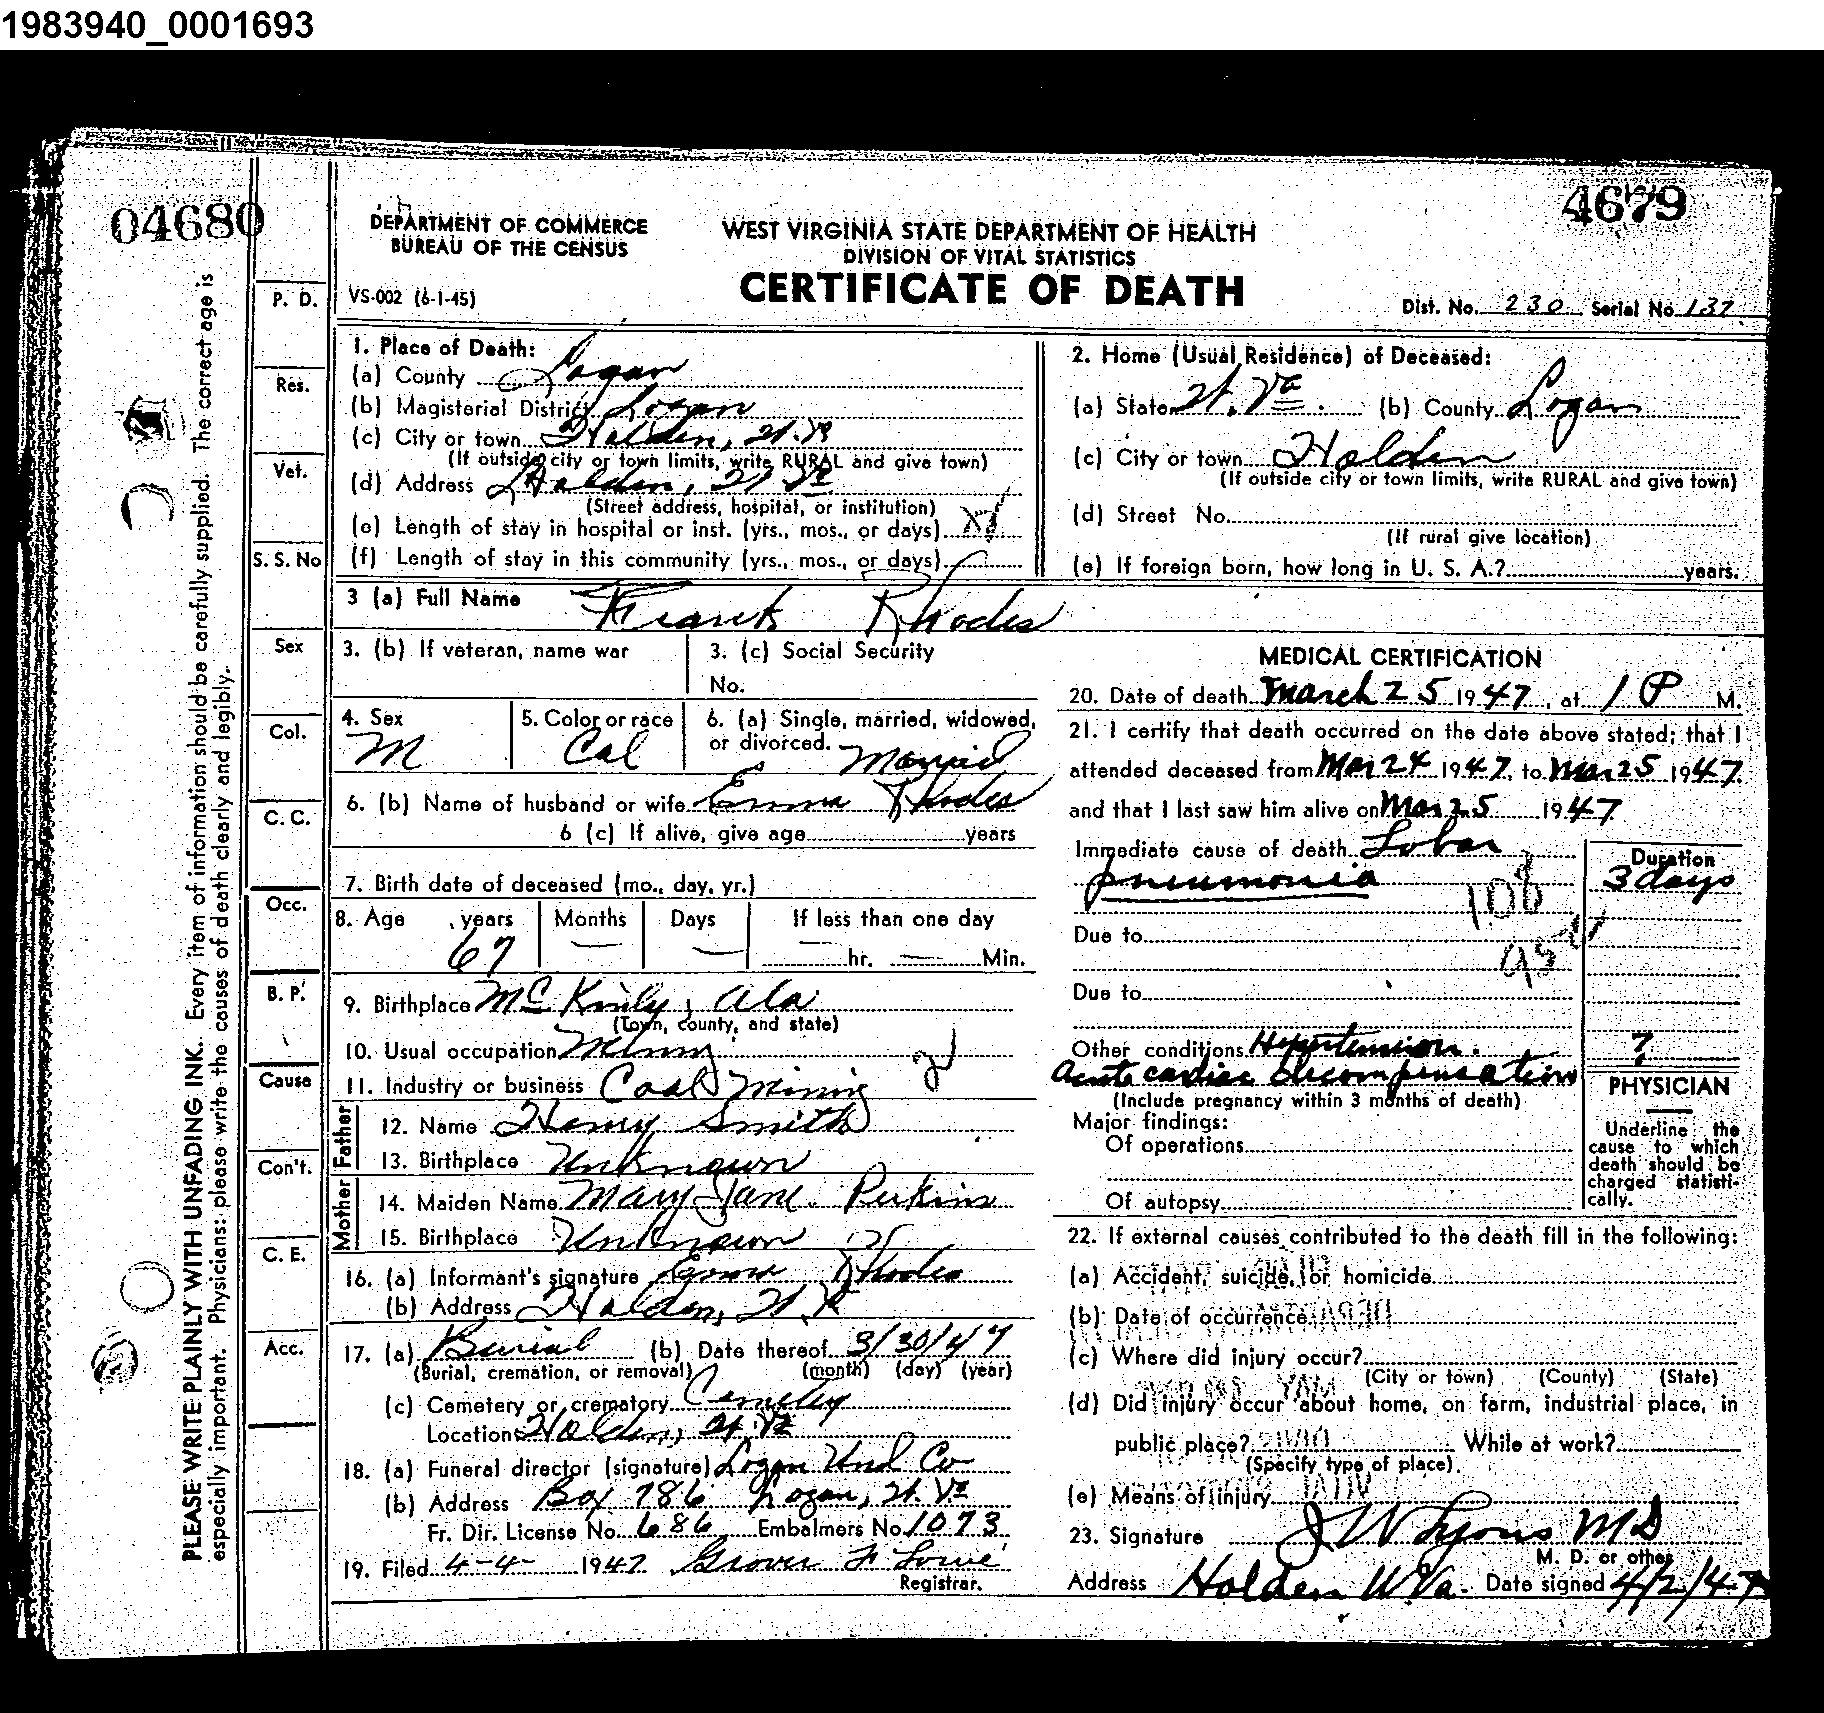 1983940_0001693
04680
4679
DEPARTMENT OF COMMERCE
BUREAU OF THE CENSUS
WEST VIRGINIA STATE DEPARTMENT OF HEALTH
DIVISION OF VITAL STATISTICS
CERTIFICATE OF DEATH
VS-002 (6-1-45)
Dist. No. 230 Serial No. 137
PLEASE WRITE PLAINLY WITH UNFADING INK. Every item of information should be carefully supplied. The correct age is
especially important. Physicians: please write the causes of death clearly and legibly.
P. D.
Res.
Vet.
S. S. No
Sex
Col.
C. C.
Occ.
B. P.
Cause
Con't.
C. E.
Acc.
1. Place of Death:
(a) County Logan
(b) Magisterial District Logan
(c) City or town Holden, W. Va
(If outside city or town limits, write RURAL and give town)
(d) Address Holden, W Va
(Street address, hospital, or institution)
(e) Length of stay in hospital or inst. (yrs., mos., or days)
(f) Length of stay in this community (yrs., mos., or days)
2. Home (Usual Residence) of Deceased:
(a) State W. Va. (b) County Logan
(c) City or town Holden
(If outside city or town limits, write RURAL and give town)
(d) Street No.
(If rural give location)
(e) If foreign born, how long in U. S. A.? years.
3 (a) Full Name Frank Rhodes
3. (b) If veteran, name war
3. (c) Social Security
No.
4. Sex M
5. Color or race Col
6. (a) Single, married, widowed,
or divorced. Married
6. (b) Name of husband or wife Emma Rhodes
6 (c) If alive, give age years
7. Birth date of deceased (mo., day, yr.)
8. Age years Months Days If less than one day
67 — — — hr. — Min.
9. Birthplace McKinly, Ala
(Town, county, and state)
10. Usual occupation
11. Industry or business Coal Mining
Father
12. Name Henry Smith
13. Birthplace Unknown
Mother
14. Maiden Name Mary Jane Perkins
15. Birthplace Unknown
16. (a) Informant's signature Rhodes
(b) Address Holden, W. Va
17. (a) Burial (b) Date thereof 3/30/47
(Burial, cremation, or removal) (month) (day) (year)
(c) Cemetery or crematory Cemetery
Location Holden, W. Va
18. (a) Funeral director (signature) Logan Und Co
(b) Address Box 786 Logan, W. Va
Fr. Dir. License No. 686 Embalmers No. 1073
19. Filed 4-4- 1947 Grover F Lowe
Registrar.
MEDICAL CERTIFICATION
20. Date of death March 25 1947, at 1 P M.
21. I certify that death occurred on the date above stated; that I
attended deceased from Mar 24 1947, to Mar 25 1947.
and that I last saw him alive on Mar 25 1947
Immediate cause of death Lobar
pneumonia
Duration
3 days
108
Due to
Due to
Other conditions Hypertension.
?
Acute cardiac decompensation
(Include pregnancy within 3 months of death)
Major findings:
Of operations
Of autopsy
PHYSICIAN
Underline the
cause to which
death should be
charged statisti-
cally.
22. If external causes contributed to the death fill in the following:
(a) Accident, suicide, or homicide
(b) Date of occurrence
(c) Where did injury occur?
(City or town) (County) (State)
(d) Did injury occur about home, on farm, industrial place, in
public place? While at work?
(Specify type of place)
(e) Means of injury
23. Signature J W Lyons MD
M. D. or other
Address Holden W. Va. Date signed 4/2/47